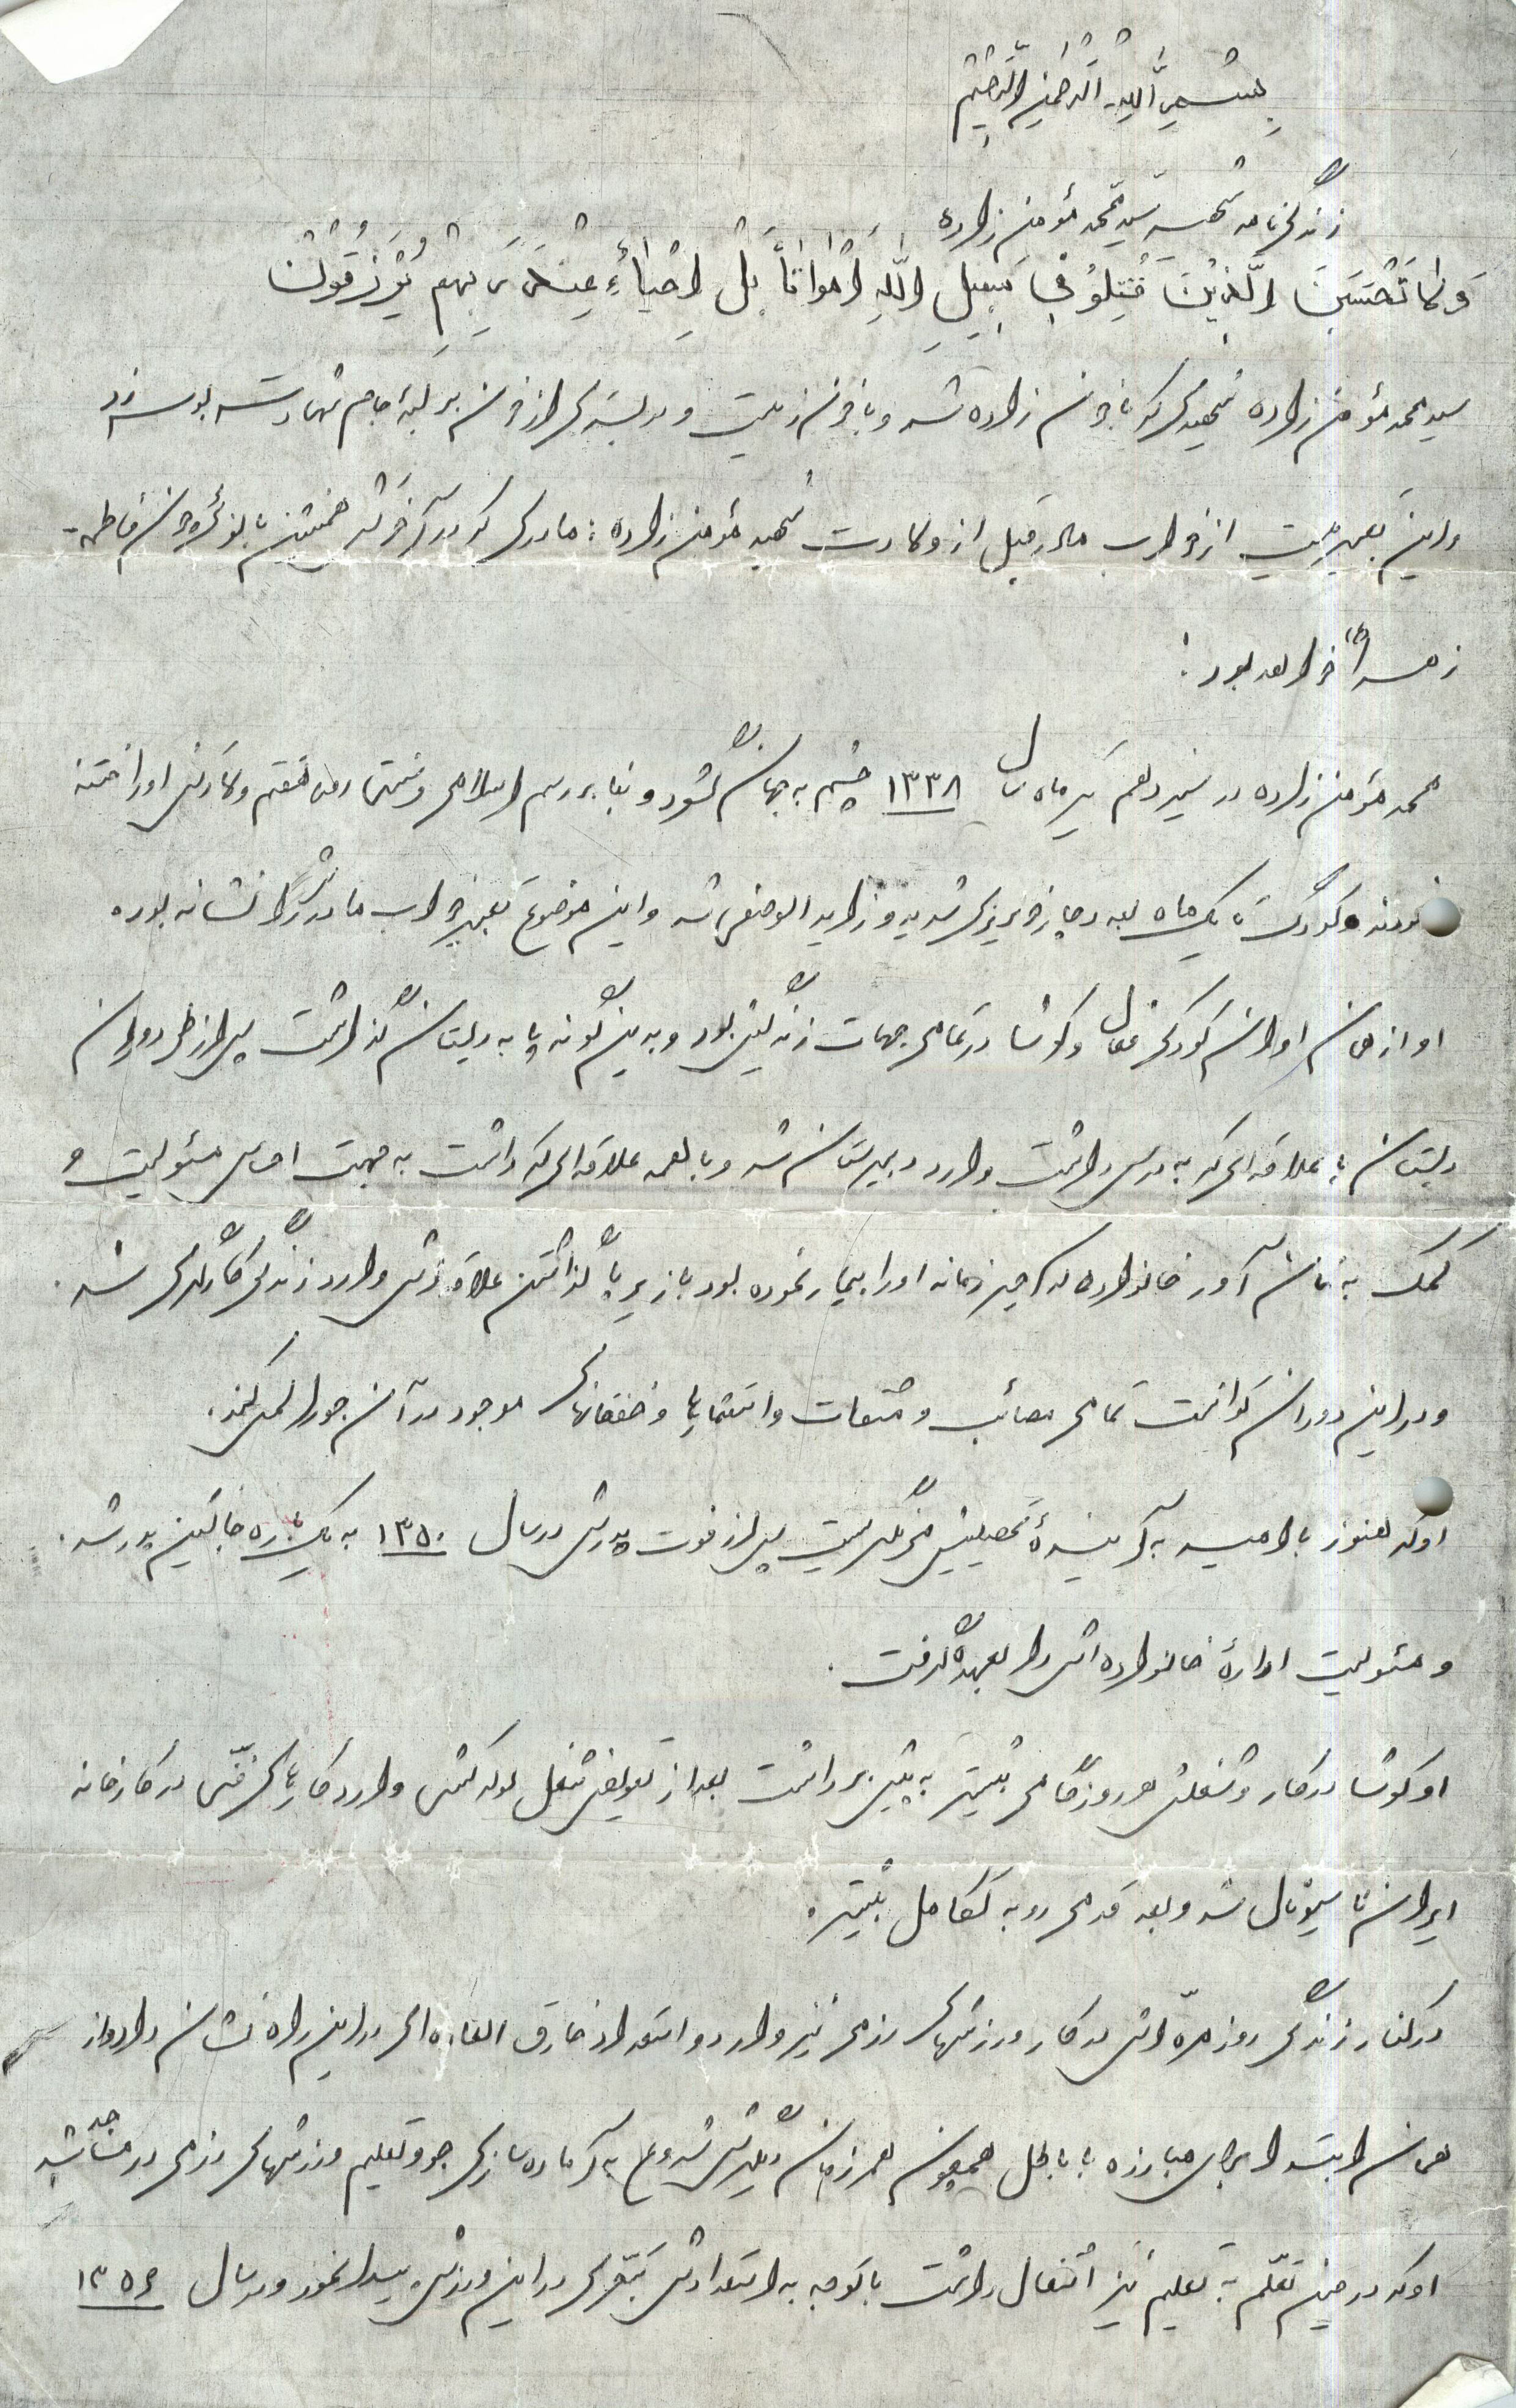 بِسْمِ اللَّهِ الرَّحْمنِ الرَّحيمِ
زندگینامه شهید سید محمد مؤمن زاده
وَلا تَحْسَبَنَ الَّذینَ قُتِلوُ فی سَبیلِ اللّهِ اَمْواتاً بَلْ اَحْیاءُ عِنْدَ رَبِهِمْ یُرْزَقُونْ
سید محمد مؤمن زاده شهیدی که با خون زاده شد و با خون زیست و در بستری از خون بر لبهٔ جام شهادت بوسه زد
و این تعبیریست از خواب مادر قبل از ولادت شهید مؤمن زاده: مادری که در آخرت همنشین بانوئی چون فاطمه
زهرا (ع) خواهد بود:
محمد مؤمن زاده در سیزدهم تیر ماه سال ۱۳۳۸ چشم به جهان گشود و بنا بر رسم اسلامی در هفتم ولادتش او را ختنه
نمودند و کودک تا یک ماه بعد دچار خونریزی شدید و زاید الوصفی شد و این موضوع تعبیر خواب مادرش را نشانه بود
او از همان اوان کودکی فعال و کوشا در تمامی جهات زندگیش بود و بدین گونه پا به دبستان گذاشت پس از طی دوران
دبستان با علاقه ای که به درس داشت وارد دبیرستان شد و با همه علاقه ای که داشت به جهت احساس مسئولیت و
کمک به نان آور خانواده که جبر زمانه او را بیمار نموده بود با زیر پا گذاشتن علاقه اش وارد زندگی کارگری شد.
و در این دوران توانست تمامی مصائب و مشقات و استثمارها و خفقانهای موجود در آن جو را لمس کند.
او که هنوز با امید به آینده تحصیلیش می نگریست پس از فوت پدرش در سال ۱۳۵۰ به یک باره جانشین پدر شد.
و مسئولیت ادارهٔ خانواده اش را بعهده گرفت.
او کوشا در کار و شغلش هر روز گامی بیشتر به پیش برداشت بعد از تعویض شغل لوله کشی وارد کارهای فنّی در کارخانه
ایران ناسیونال شد و بعد قدمی رو به تکامل بیشتر.
در کنار زندگی روزمرّه اش در کار ورزشهای رزمی نیز وارد و استعداد خارق العاده ای در این راه نشان داد و از
همان ابتدا برای مبارزه با باطل همچون همرزمان دیگرش شروع به آماده سازی جو و تعلیم ورزشهای رزمی در
او که در حین تعلّم به تعلیم نیز اشتغال داشت با توجه به استعدادش تبحّری در این ورزش پیدا نمود و در سال ۱۳۵۶